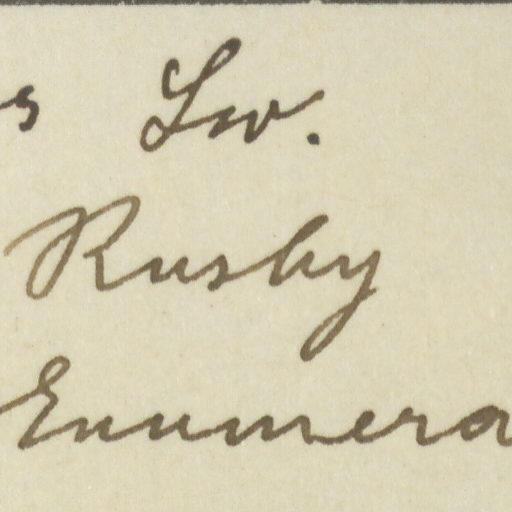 s Sw.
Rusby
Enumera